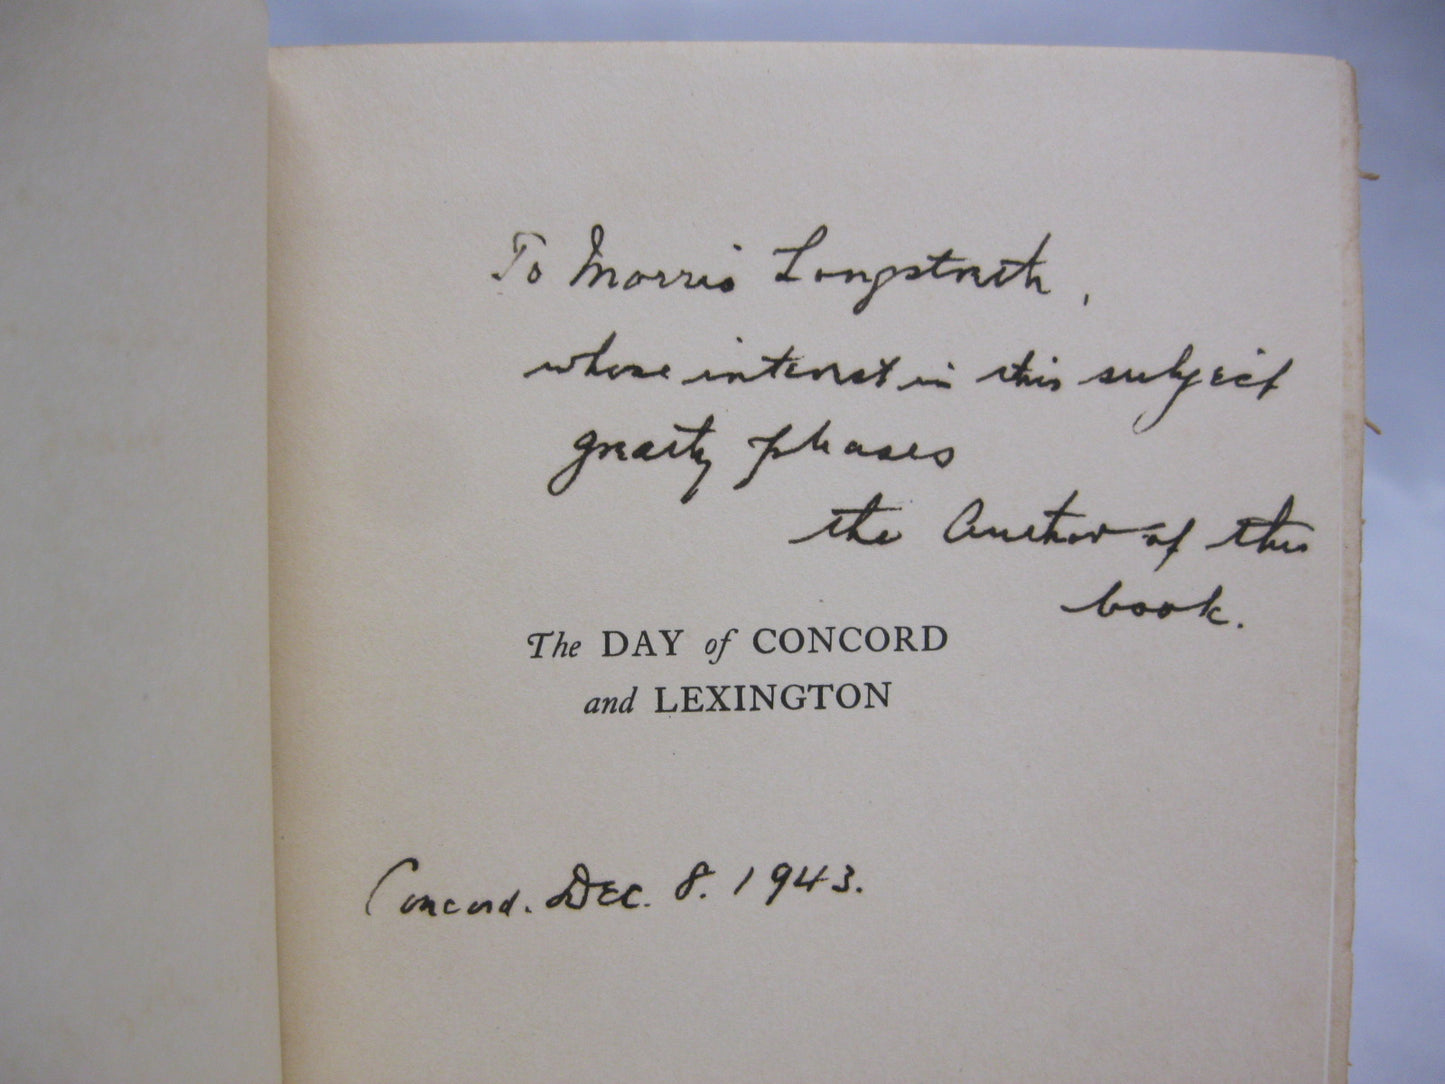 To Morris Longstreth,
whose interest in this subject
greatly pleases
the Author of this
book.
The DAY of CONCORD
and LEXINGTON
Concord. Dec. 8. 1943.